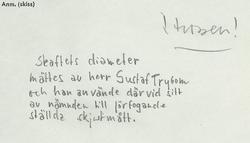 Anm. (skiss)
Skaftets diameter
mättes av herr Gustaf Trybom
och han använde därvid ett
av nämnden till förfogande
ställda skjutmått.